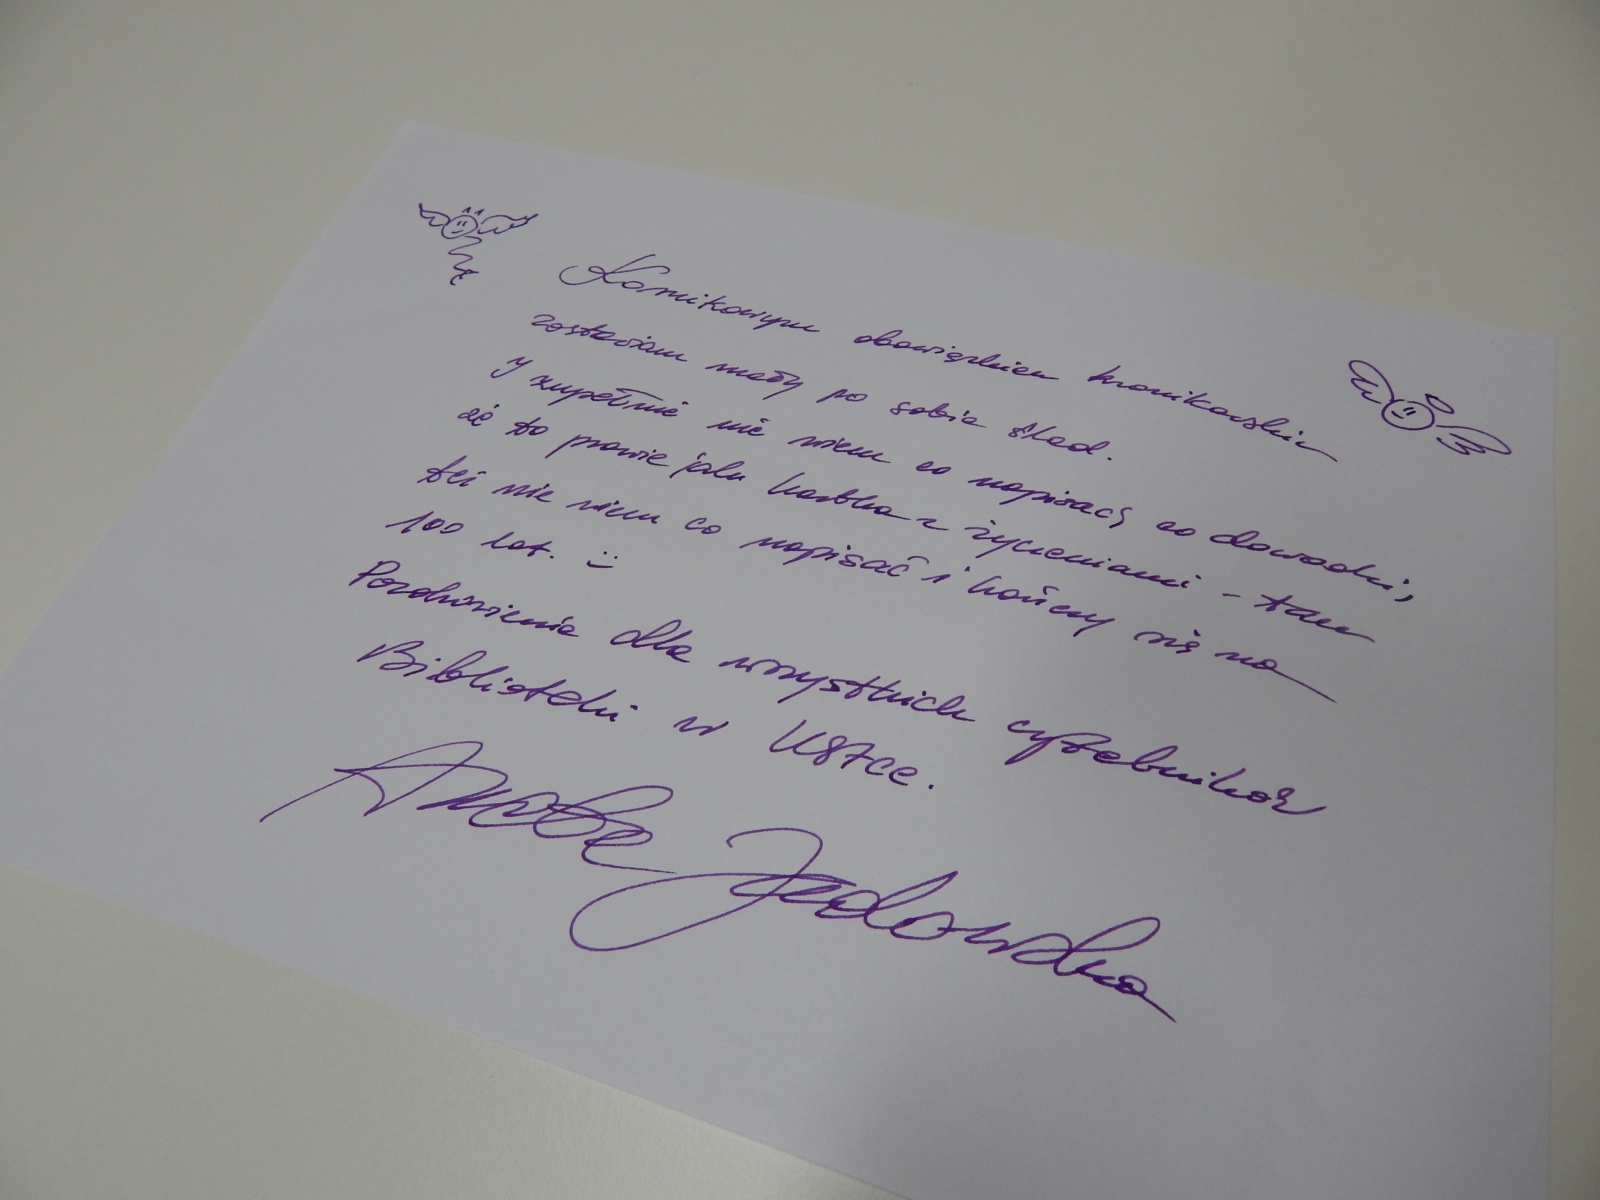 Kronikowym obowiązkiem kronikarskim
zostawiam mały po sobie ślad.
I zupełnie nie wiem co napisać, co dowodzi,
że to prawie jak kartka z życzeniami - tam
też nie wiem co napisać i kończy się na
100 lat. :)
Pozdrowienia dla wszystkich czytelników
Biblioteki w Ustce.
Aneta Jadowska